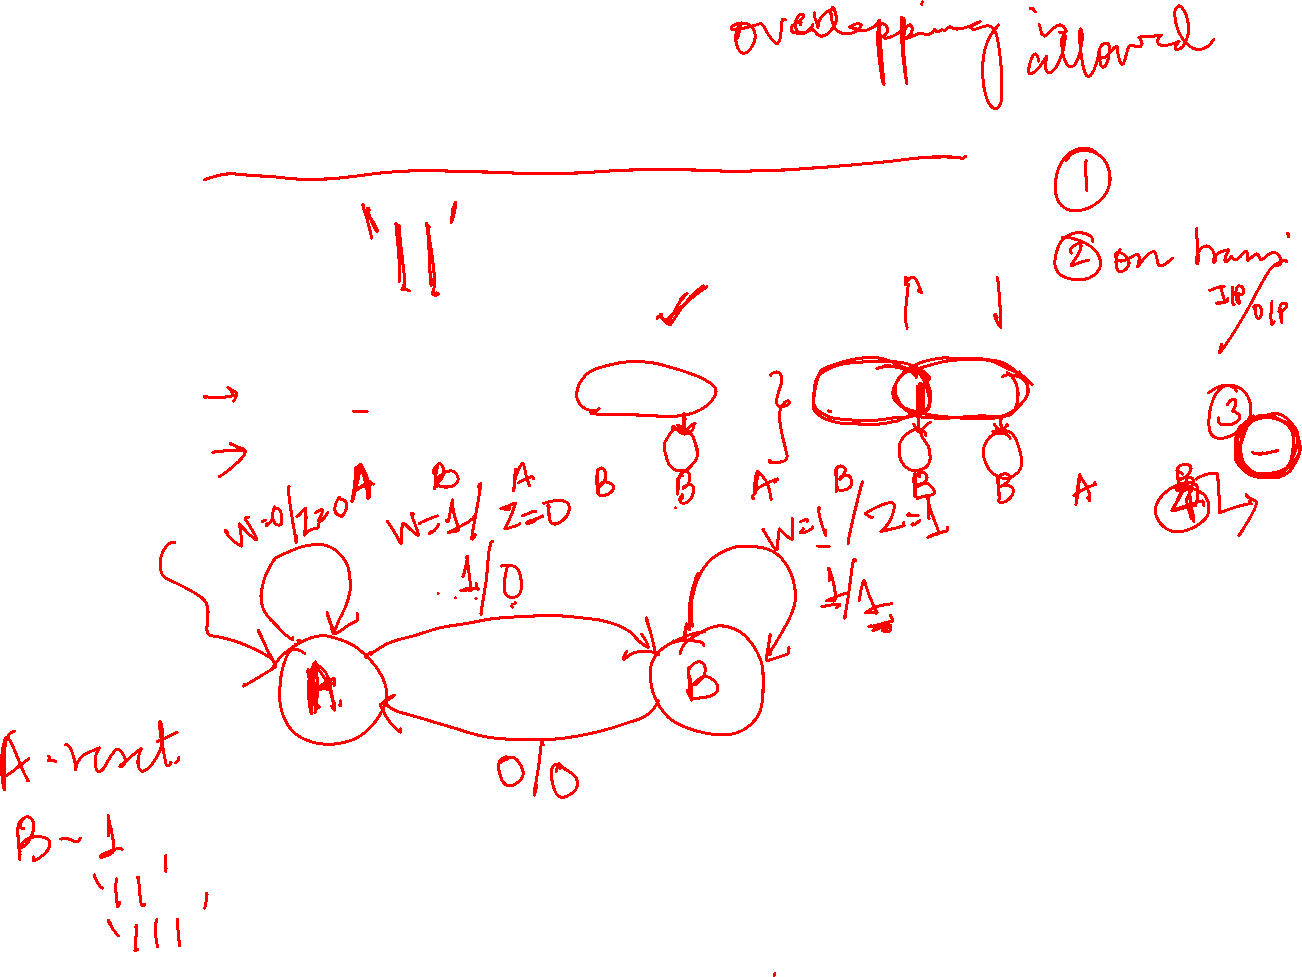 overlapping is allowed
1
'11'
2 on trans
I/P / O/P
3
A B A B B A B B B A B
4
W=0/Z=0 W=1/Z=0 W=1/Z=1
1/0 1/1
A B
0/0
A - reset
B - 1
'11'
'111'